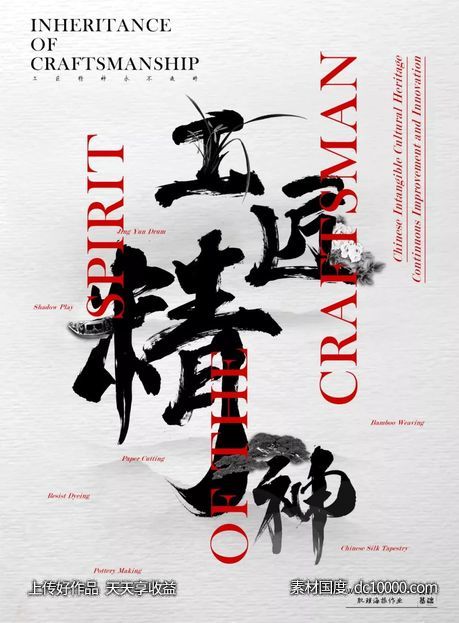 INHERITANCE
OF
CRAFTSMANSHIP
工匠精神永不过时
SPIRIT
OF THE
CRAFTSMAN
Chinese Intangible Cultural Heritage
Continuous Improvement and Innovation
工
匠
精
神
Jing Yun Drum
Shadow Play
Bamboo Weaving
Paper Cutting
Resist Dyeing
Chinese Silk Tapestry
Pottery Making
上传好作品 天天享收益
素材国度.dc10000.com
肌理海报作业 基础